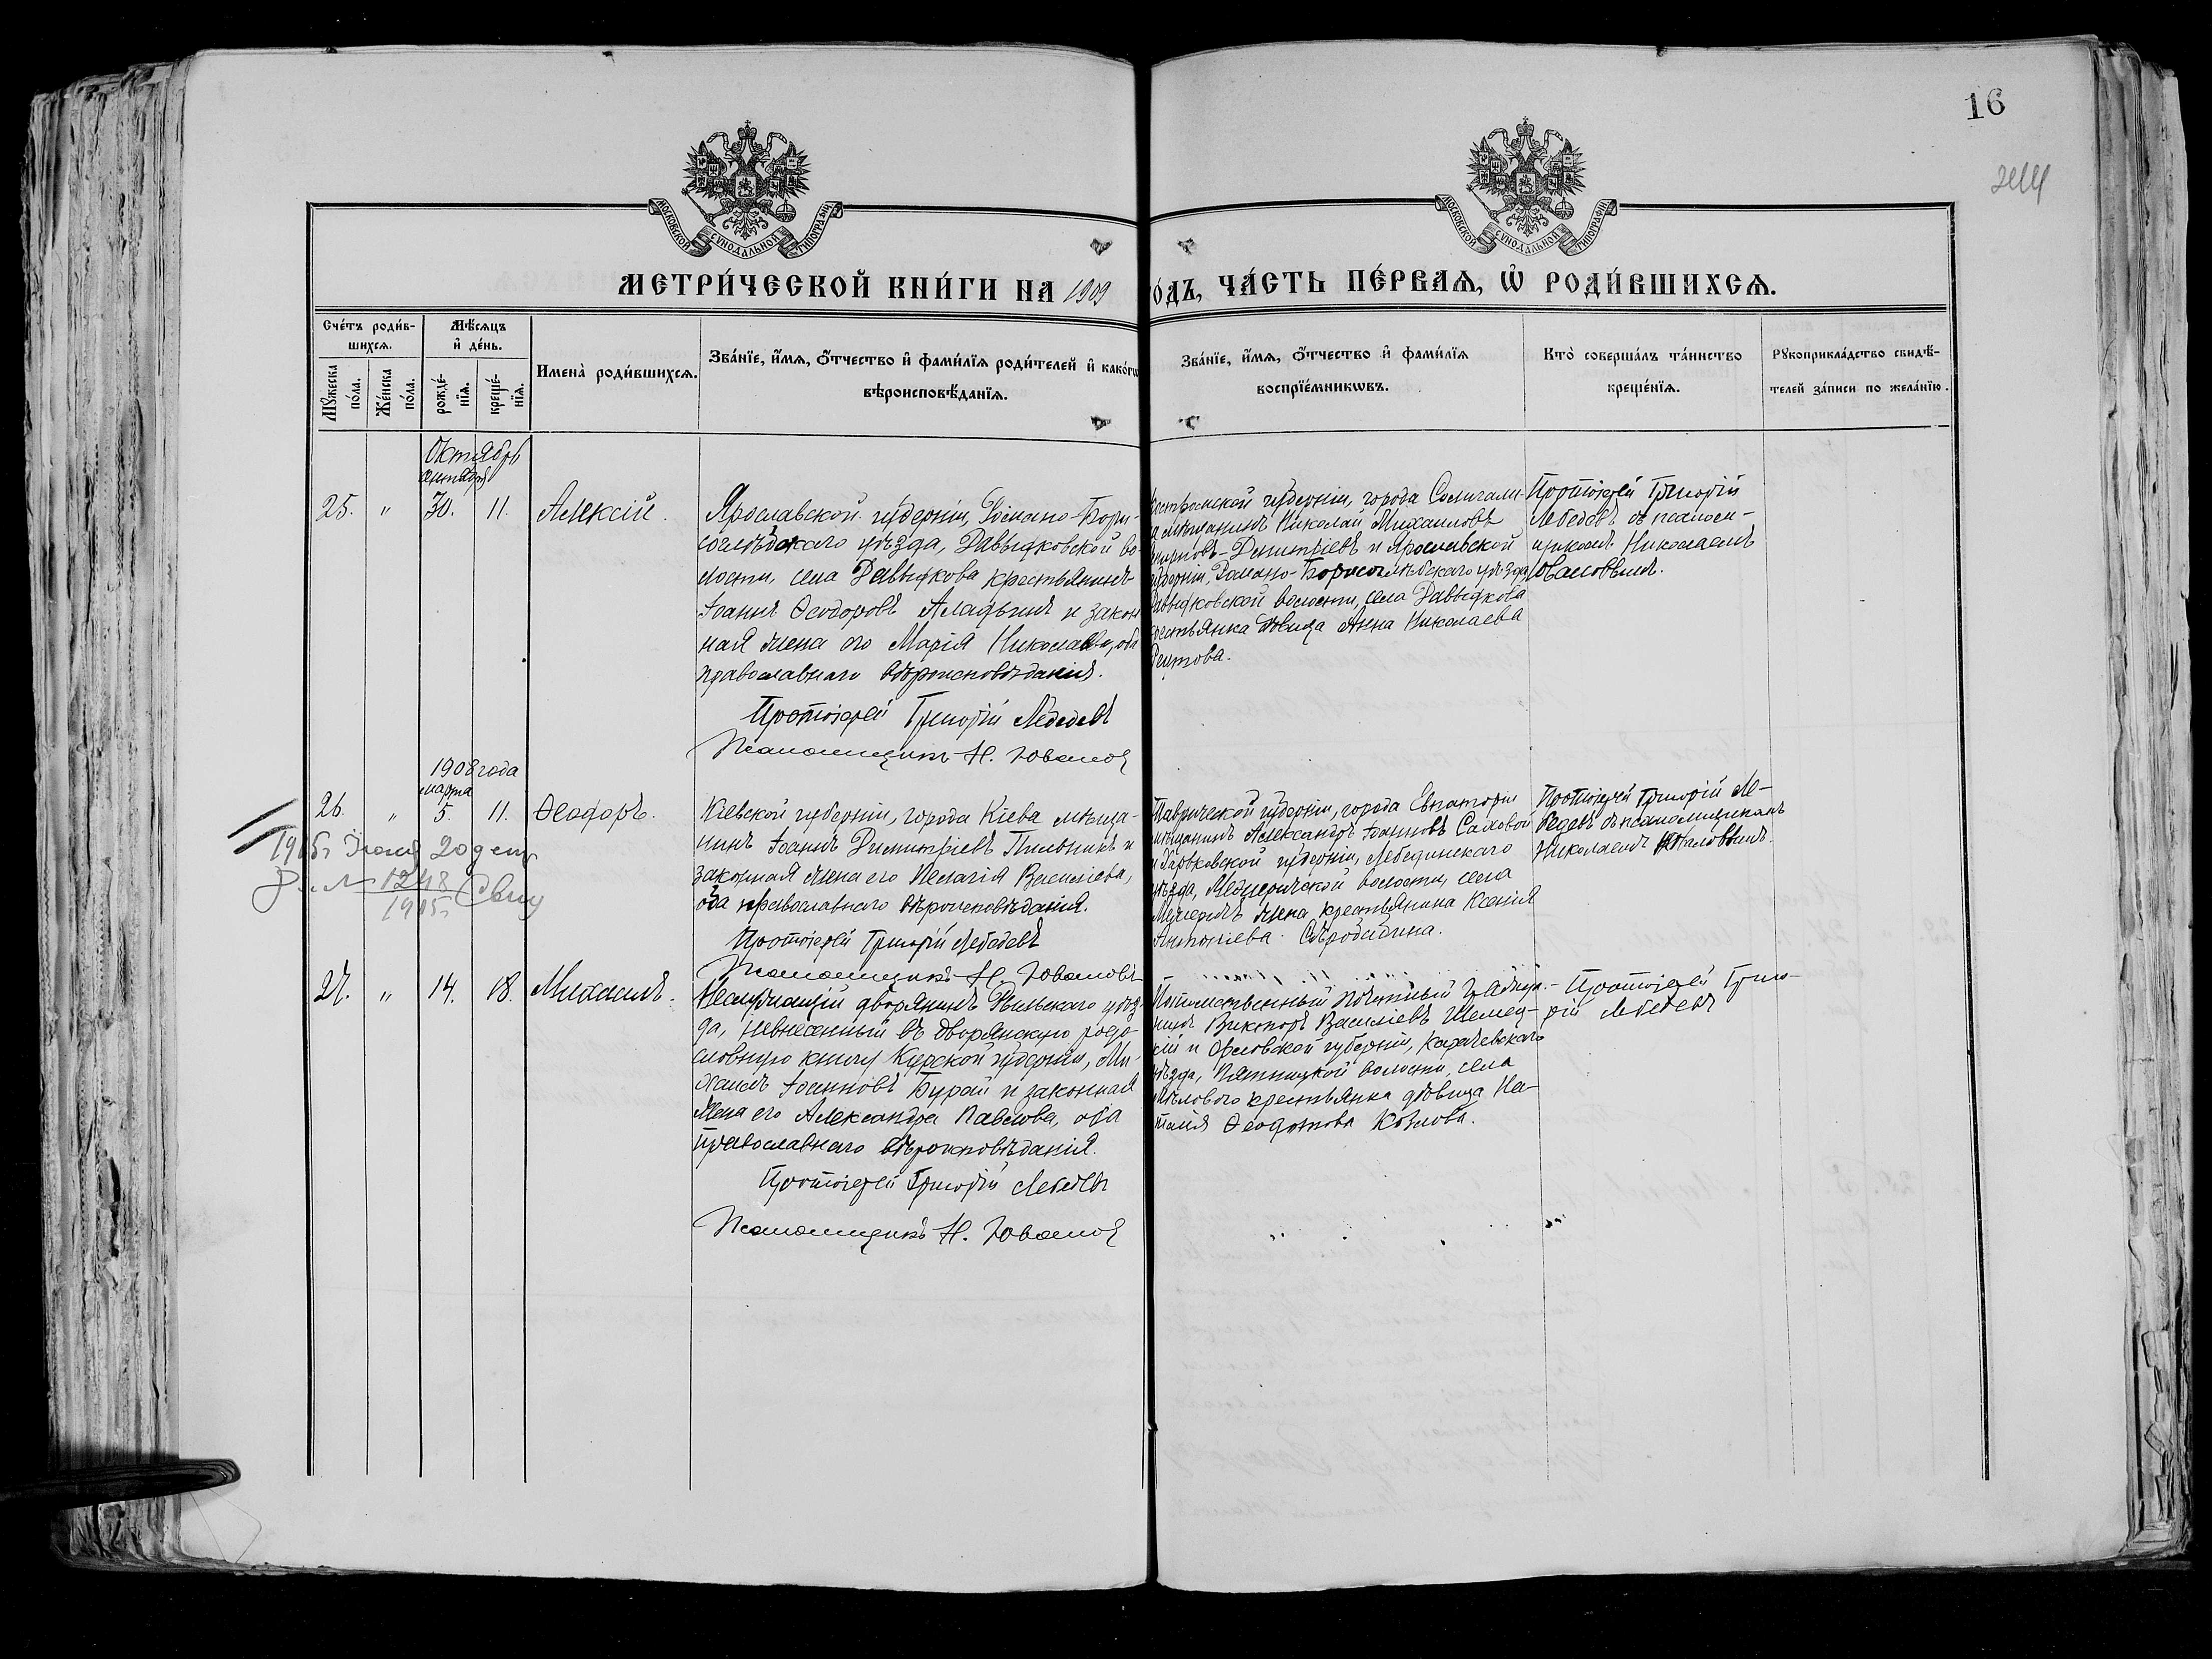 16
244
МОСКОВСКОЙ СѴНОДАЛЬНОЙ ТИПОГРАФІИ
МОСКОВСКОЙ СѴНОДАЛЬНОЙ ТИПОГРАФІИ
МЕТРИ́ЧЕСКОЙ КНИ́ГИ НА 1909
О́ДЪ, ЧА́СТЬ ПЕ́РВАЯ, Ѡ РОДИ́ВШИХСЯ.
Сче́тъ роди́в-
шихся.
Мѣ́сяцъ
и҆ де́нь.
Мꙋ́жеска по́ла.
Же́нска по́ла.
рожде́-
нїя.
креще́-
нїя.
Имена̀ роди́вшихся.
Зва́нїе, и҆́мя, ѻ҆́тчество и҆ фами́лїя роди́телей и҆ како́гѡ
вѣроисповѣ́данїя.
Зва́нїе, и҆́мя, ѻ҆́тчество и҆ фами́лїя
воспрїе́мникѡвъ.
Кто̀ соверша́лъ та́инство
креще́нїя.
Рꙋкоприкла́дство свидѣ́-
телей за́писи по жела́нїю.
Октябрь
сентября
25. " 30. 11. Алексій.
Ярославской губерніи, Романо-Бори-
соглѣбскаго уѣзда, Давыдковской во-
лости, села Давыдкова крестьянинъ
Іоаннъ Ѳеодоровъ Аладьинъ и закон
ная жена его Марія Николаева, оба
православнаго вѣроисповѣданія.
Протоіерей Григорій Лебедевъ
Псаломщикъ Н. Ювалов
остромской губерніи, города Солигали-
а мѣщанинъ Николай Михаиловъ
мирновъ-Димитріевъ и Ярославской
уберніи, Романо-Борисоглѣбскаго уѣзда
авыдковской волости, села Давыдкова
рестьянка дѣвица Анна Николаева
Реутова.
Протоіерей Григорій
Лебедевъ съ псалом-
щикомъ Николаемъ
Юваловымъ.
1908 года
марта
26. " 5. 11. Ѳеодоръ.
Кіевской губерніи, города Кіева мѣща-
нинъ Іоаннъ Димитріевъ Пильникъ и
законная жена его Пелагія Василіева,
оба православнаго вѣроисповѣданія.
Протоіерей Григорій Лебедевъ
Псаломщикъ Н. Юваловъ
Таврической губерніи, города Евпаторіи
мѣщанинъ Александръ Іоанновъ Садовой
и Харьковской губерніи, Лебединскаго
уѣзда, волости, села
жена крестьянина Ксенія
Антоніева
Протоіерей Григорій Ле-
бедевъ съ псаломщикомъ
Николаемъ Юваловымъ.
1915 г. Іюня 20 дня
1248
1915 г.
27. " 14. 18. Михаилъ.
Неслужащій дворянинъ Рыльскаго уѣз-
да, невнесенный въ дворянскую родо-
словную книгу Курской губерніи, Ми-
хаилъ Іоанновъ Бурай и законная
жена его Александра Павлова, оба
православнаго вѣроисповѣданія.
Протоіерей Григорій Лебедевъ
Псаломщикъ Н. Ювалов
Потомственный почетный гражда-
нинъ Викторъ Василіевъ Шемец-
кій и Орловской губерніи, Карачевскаго
уѣзда, Пятницкой волости, села
Мѣлового крестьянка дѣвица На-
талія Ѳеодотова Козлова.
Протоіерей Григо-
рій Лебедевъ